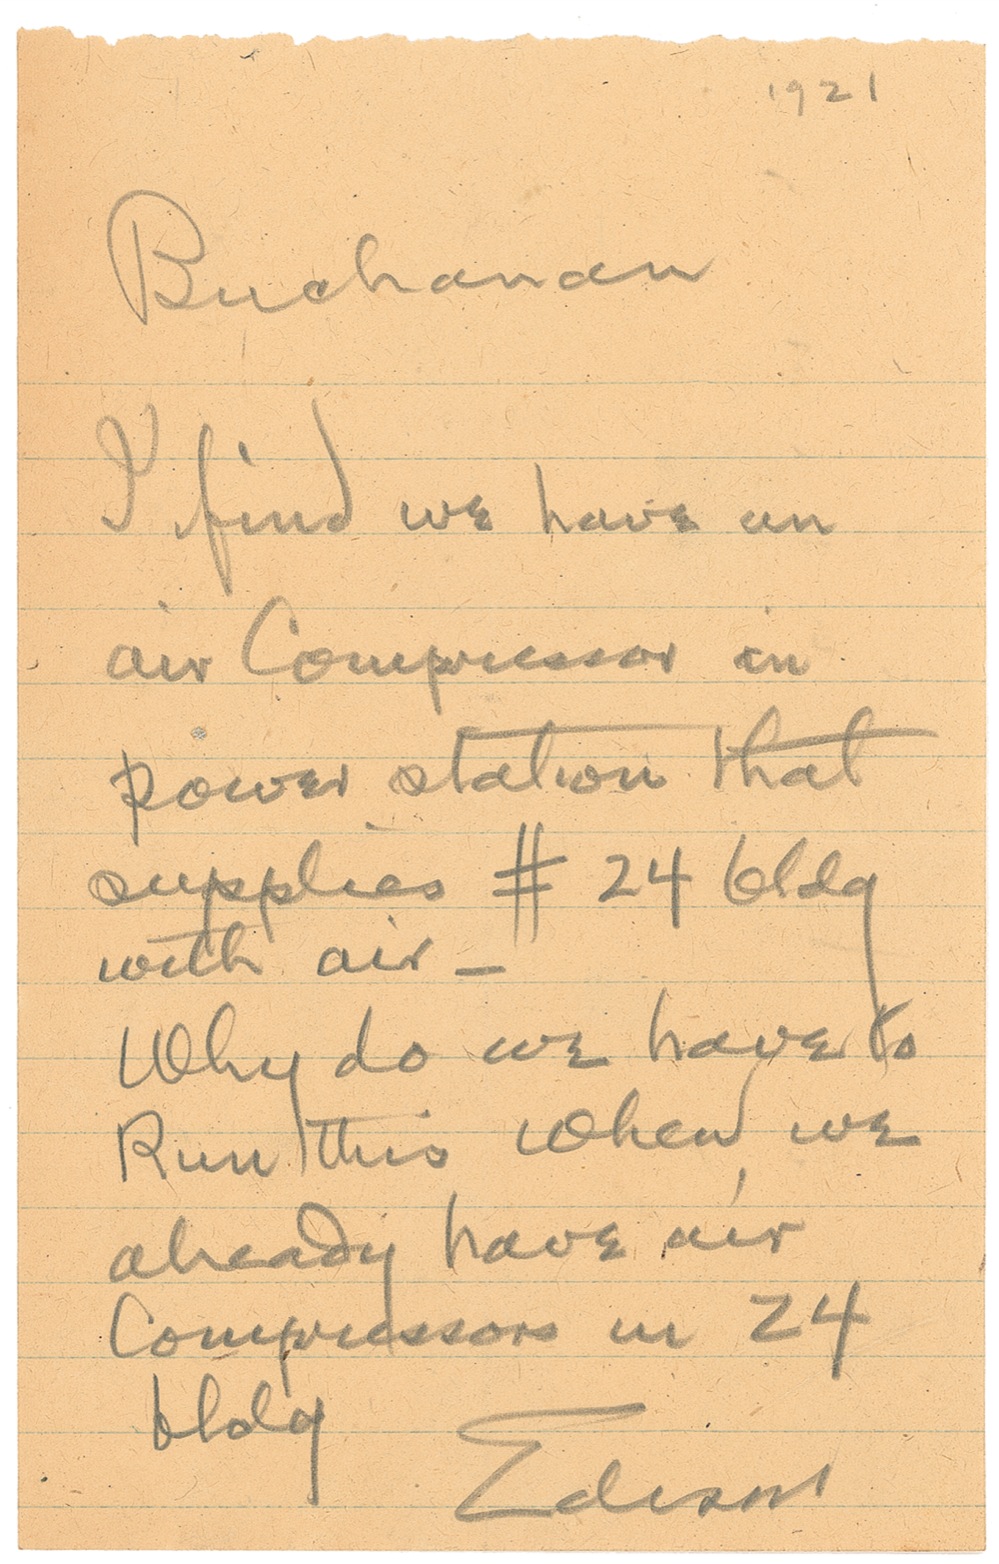 1921
Buchanan
I find we have an
air Compressor in
power station that
supplies # 24 bldg
with air —
Why do we have to
Run this when we
already have air
Compressors in 24
bldg
Edison